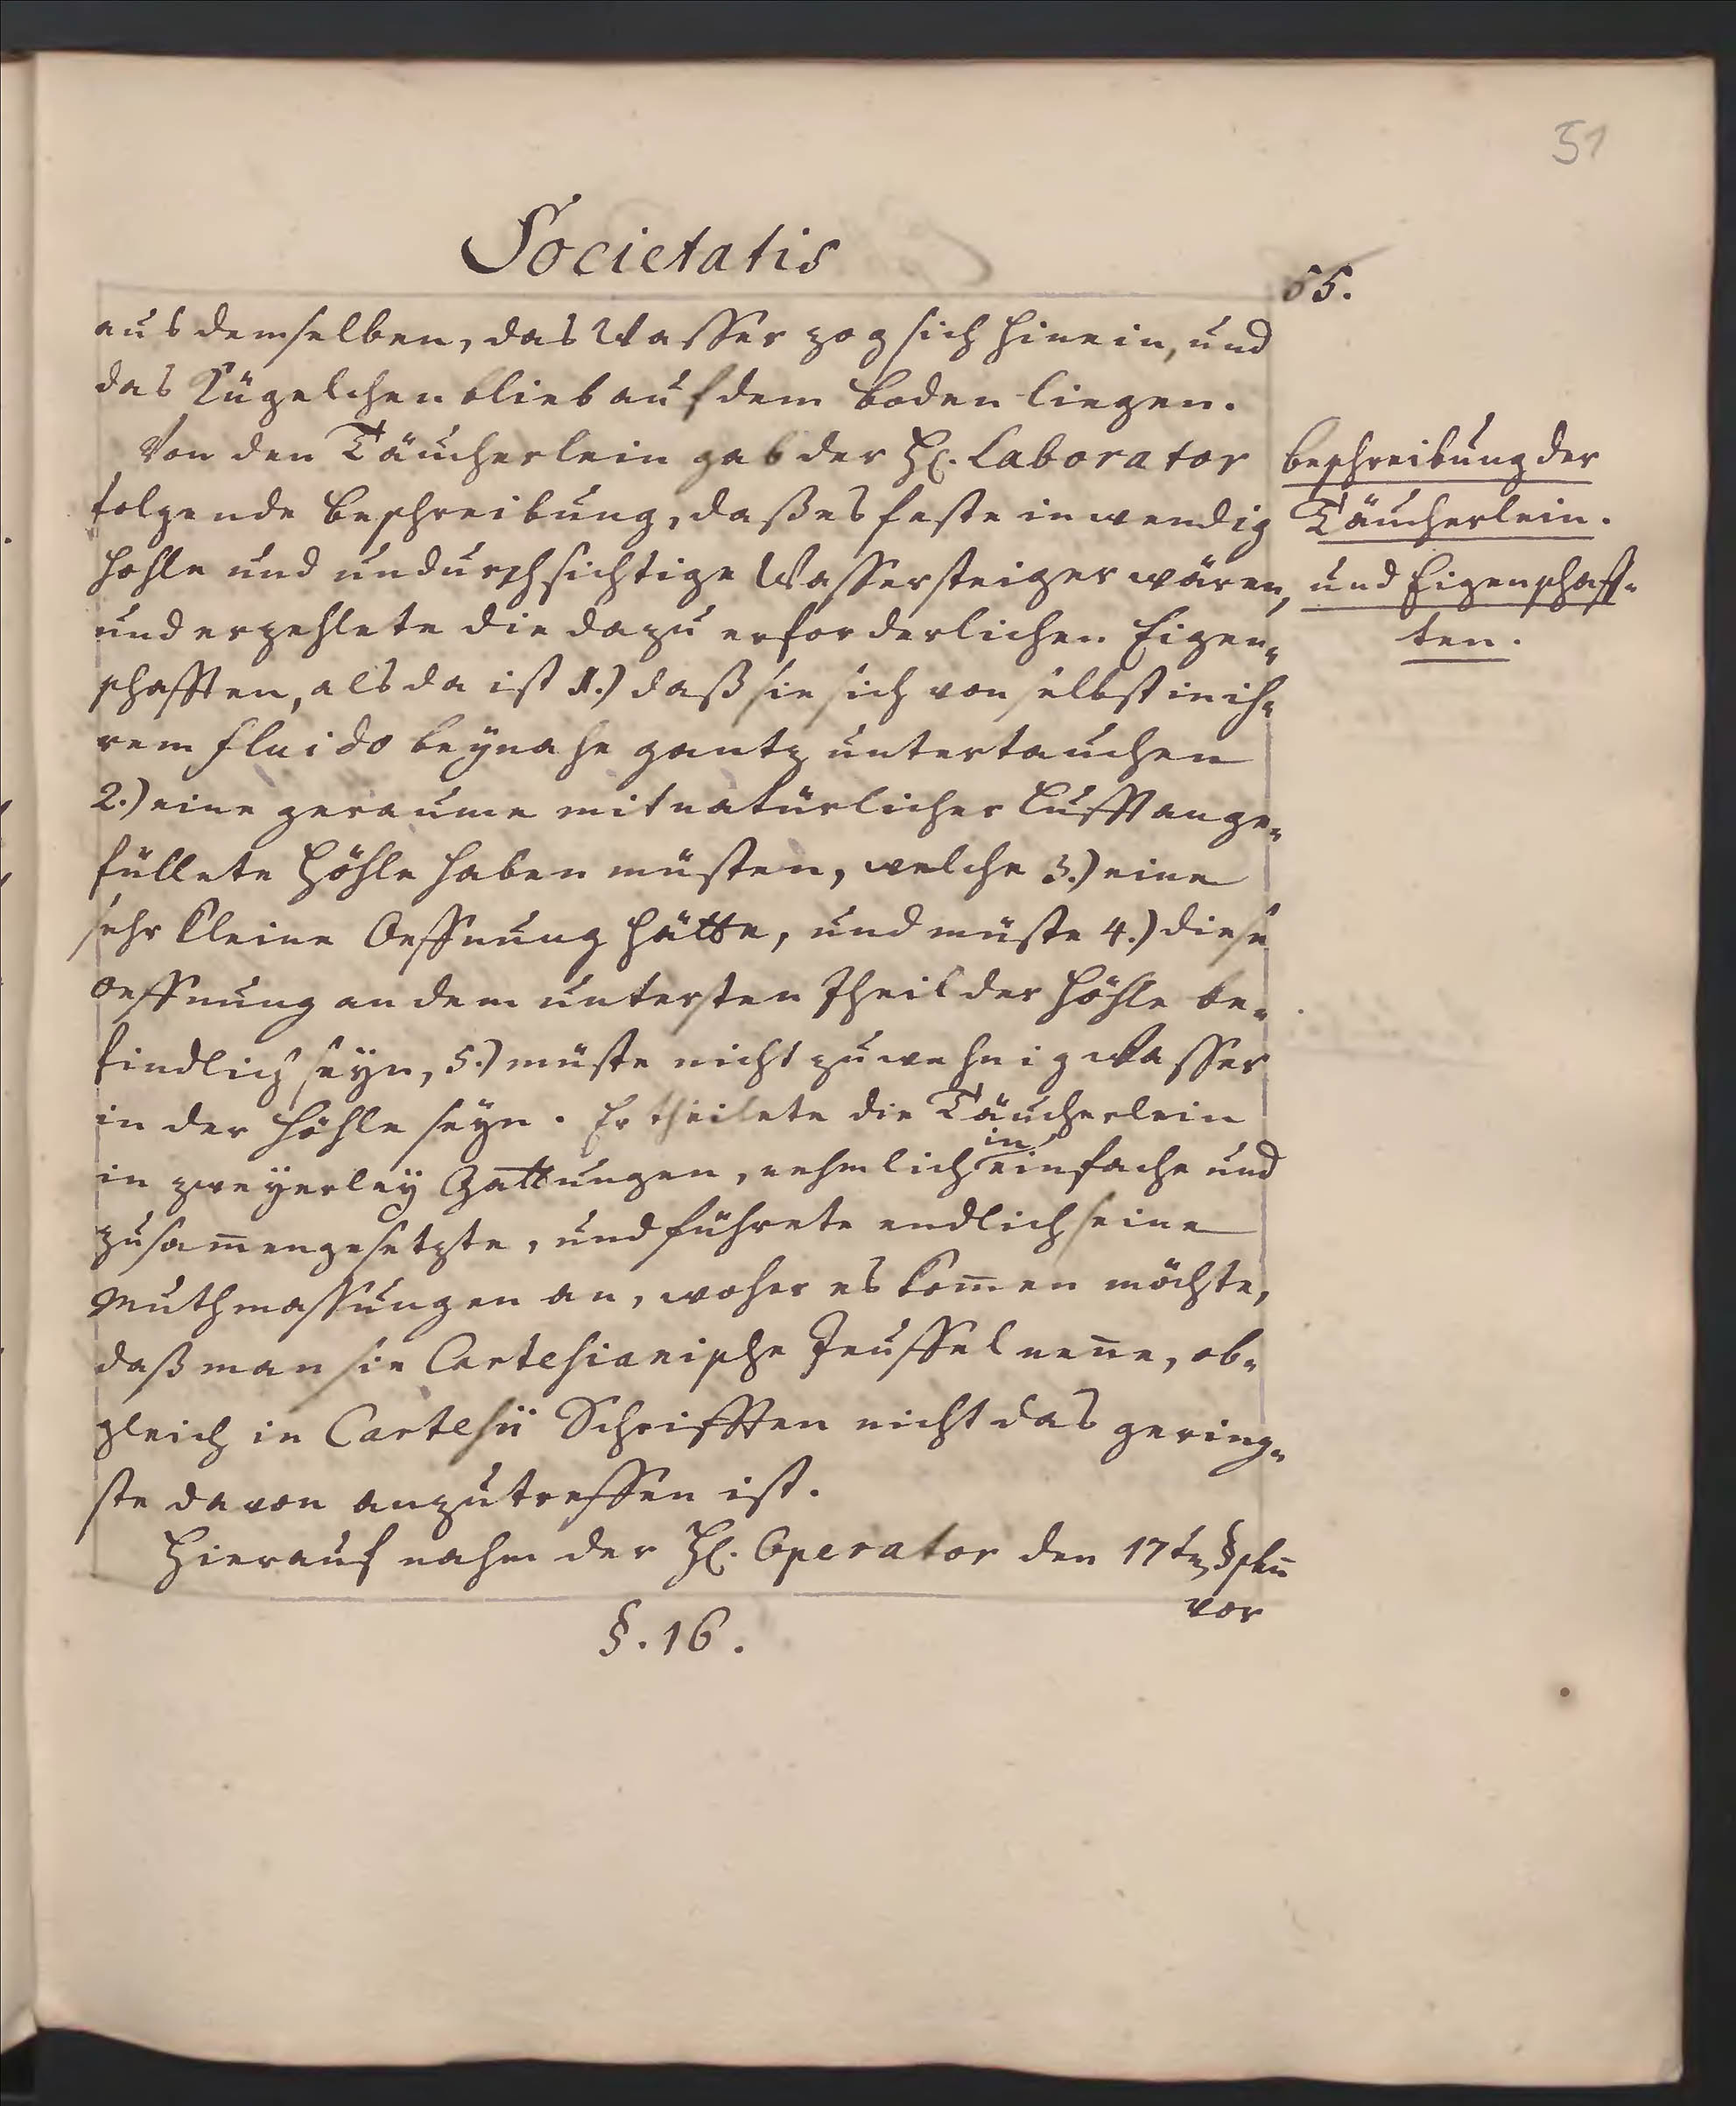 51
Societatis
55.
aus demselben, das Wasser zog sich hinein, und
das Kügelchen blieb auf dem Boden liegen.
Von den Täucherlein gab der H. Laborator
folgende Beschreibung, daß es feste inwendig
hohle und undurchsichtige Wassersteiger wären,
und erzehlete die dazu erforderlichen Eigen-
schafften, als da ist 1.) daß sie sich von selbst in ih-
rem fluido beynahe gantz untertauchen
2.) eine geraume mit natürlicher Lufft ange-
füllete Höhle haben müsten, welche 3.) eine
sehr kleine Oeffnung hätte, und müste 4.) diese
Oeffnung an dem untersten Theil der Höhle be-
findlich seyn, 5.) müste nicht zu wehnig Wasser
in der Höhle seyn. Er theilete die Täucherlein
in zweyerley Gattungen, nehmlich in einfache und
zusam̅engesetzte, und führete endlich seine
Muthmassungen an, woher es kom̅en möchte,
daß man sie Cartesianische Teuffel nen̅e, ob-
gleich in Cartesii Schrifften nicht das gering-
ste davon anzutreffen ist.
Hierauf nahm der H. Operator den 17ten §phu̅
vor
§. 16.
Beschreibung der
Täucherlein.
und Eigenschaff-
ten.